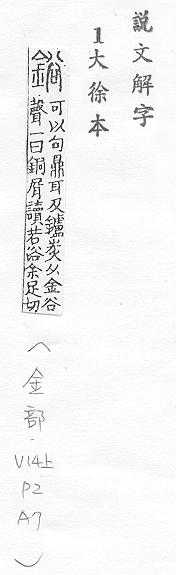 説文解字
1大徐本
鋊
可以句鼎耳及鑪炭从金谷
聲一曰銅屑讀若浴余足切
(金部.
V14上
P2
A7)